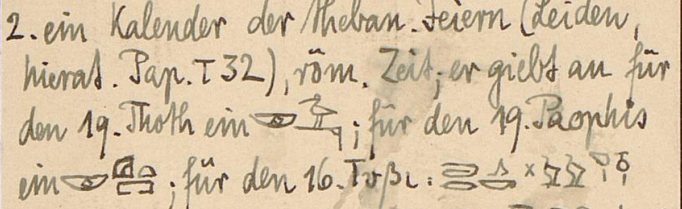 2. ein Kalender der theban. Feiern (Leiden,
hierat. Pap. T 32), röm. Zeit; er giebt an für
den 19. Thoth ein ; für den 19. Paophis
ein ; für den 16. Toβι :